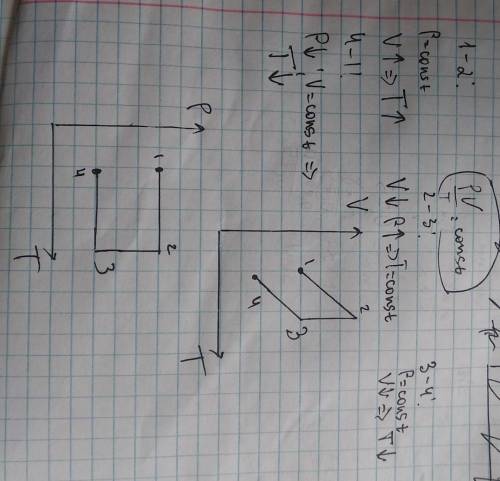 PV
T = const
1-2:
P=const
V↑ => T↑
2-3:
V↓ P↑ => T=const
3-4:
P=const
V↓ => T↓
4-1:
P↓, V=const =>
T↓
V
2
1
3
4
T
P
1
2
4
3
T